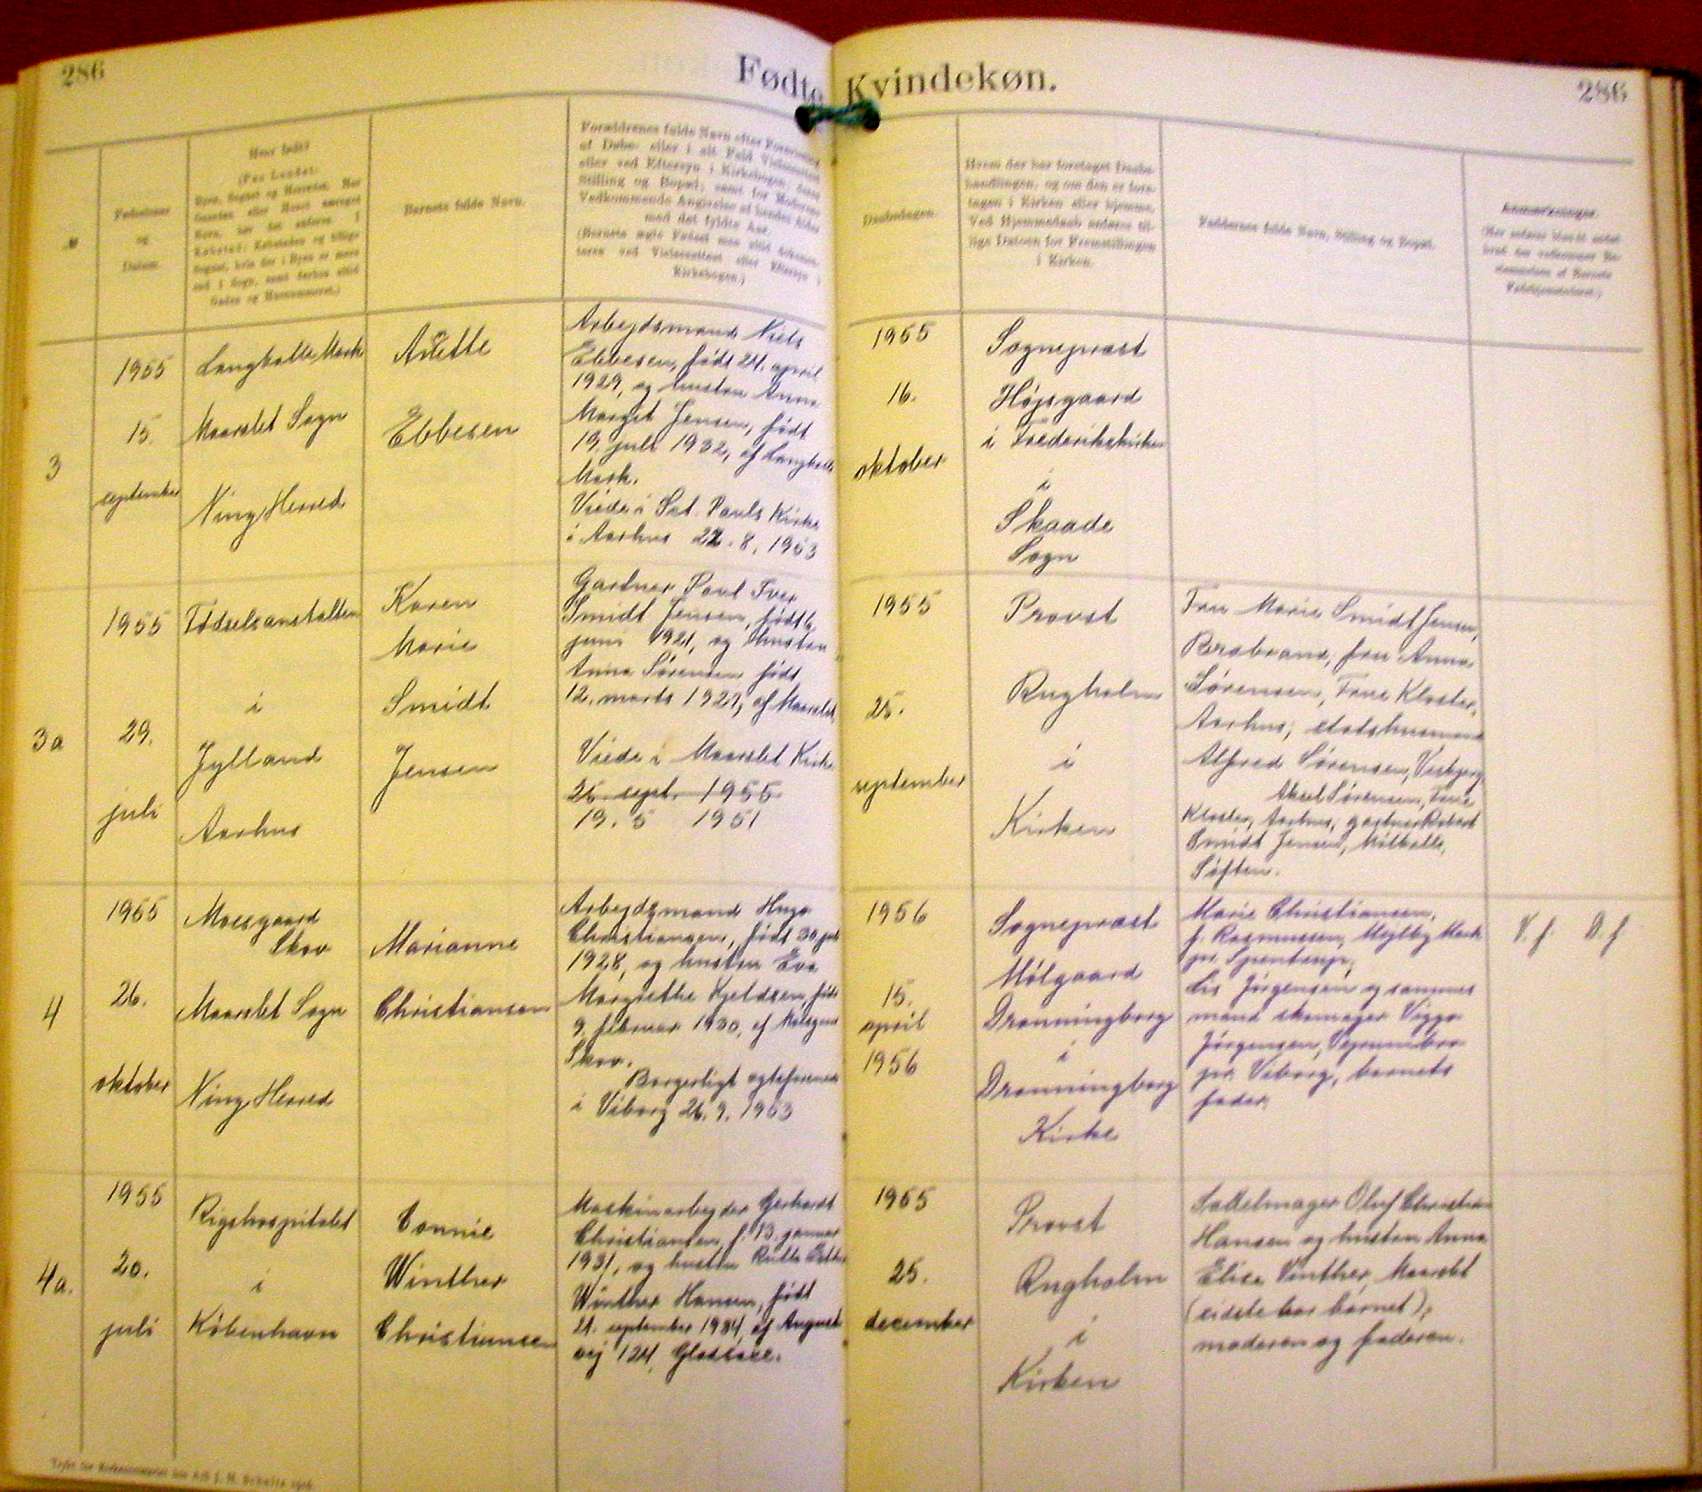 286
Fødte Kvindekøn.
286
Fødselsaar
og
Datum.
Hvor født?
(Paa Landet:
Byen, Sognet og Herredet. Har
Barnets fulde Navn.
Forældrenes fulde Navn efter Forevisning
af Døbe- eller i alt Fald Vielsesattest
eller ved Eftersyn i Kirkebogen, deres
Stilling og Bopæl; samt for Moderens
Vedkommende Angivelse af hendes Alder
med det fyldte Aar.
Kirkebogen.)
Daabsdagen.
Hvem der har foretaget Daabs-
handlingen, og om den er fore-
tagen i Kirken eller hjemme.
Ved Hjemmedaab anføres til-
lige Datoen for Fremstillingen
i Kirken.
Faddernes fulde Navn, Stilling og Bopæl.
Anmærkninger.
3
1955
15.
september
Langballe Mark
Maarslet Sogn
Ning Herred
Anette
Ebbesen
Arbejdsmand Niels
Ebbesen, født 24. april
1929, og hustru Anna
Margit Jensen, født
19. juli 1932, af Langballe
Mark.
Viede i Sct. Pauls Kirke
i Aarhus 22. 8. 1953
1955
16.
oktober
Sognepræst
Højsgaard
i Frederikskirken
i
Skaade
Sogn
3a
1955
29.
juli
Fødselsanstalten
i
Jylland
Aarhus
Karen
Marie
Smidt
Jensen
Gartner Poul Iver
Smidt Jensen, født 6.
juni 1921, og hustru
Anna Sørensen født
12. marts 1927, af Maarslet
Viede i Maarslet Kirke
25. sept. 1955
19. 5 1951
1955
25.
september
Provst
Rugholm
i
Kirken
Fru Marie Smidt Jensen,
Brabrand, fru Anna
Sørensen, True Kloster,
Aarhus, statshusmand
Alfred Sørensen, Vesbjerg
Aksel Sørensen, True
Kloster, Aarhus, gartner Robert
Smidt Jensen, Mølballe,
Søften.
4
1955
26.
oktober
Moesgaard
Skov
Maarslet Sogn
Ning Herred
Marianne
Christiansen
Arbejdsmand Hugo
Christiansen, født 30. juli
1928, og hustru Eva
Margrethe Kjeldsen, født
9. februar 1930, af Moesgaard
Skov.
Borgerligt ægteforenede
i Viborg 26. 9. 1953
1956
15.
april
1956
Sognepræst
Mølgaard
Dronningborg
i
Dronningborg
Kirke
Marie Christiansen,
f. Rasmussen, Mejlby Mark
pr. Spentrup,
Lis Jørgensen og sammes
mand skomager Viggo
Jørgensen, Vejrumbro
pr. Viborg, barnets
fader.
V. f. D. f
4a.
1955
20.
juli
Rigshospitalet
i
København
Connie
Winther
Christiansen
Maskinarbejder Gerhardt
Christiansen, f. 13. januar
1931, og hustru Ruth Esther
Winther Hansen, født
21. september 1934, af August-
vej 124, Gladsaxe.
1955
25.
december
Provst
Rugholm
i
Kirken
Saddelmager Oluf Christian
Hansen og hustru Anna
Elise Vinther, Maarslet
(sidste bar barnet),
moderen og faderen.